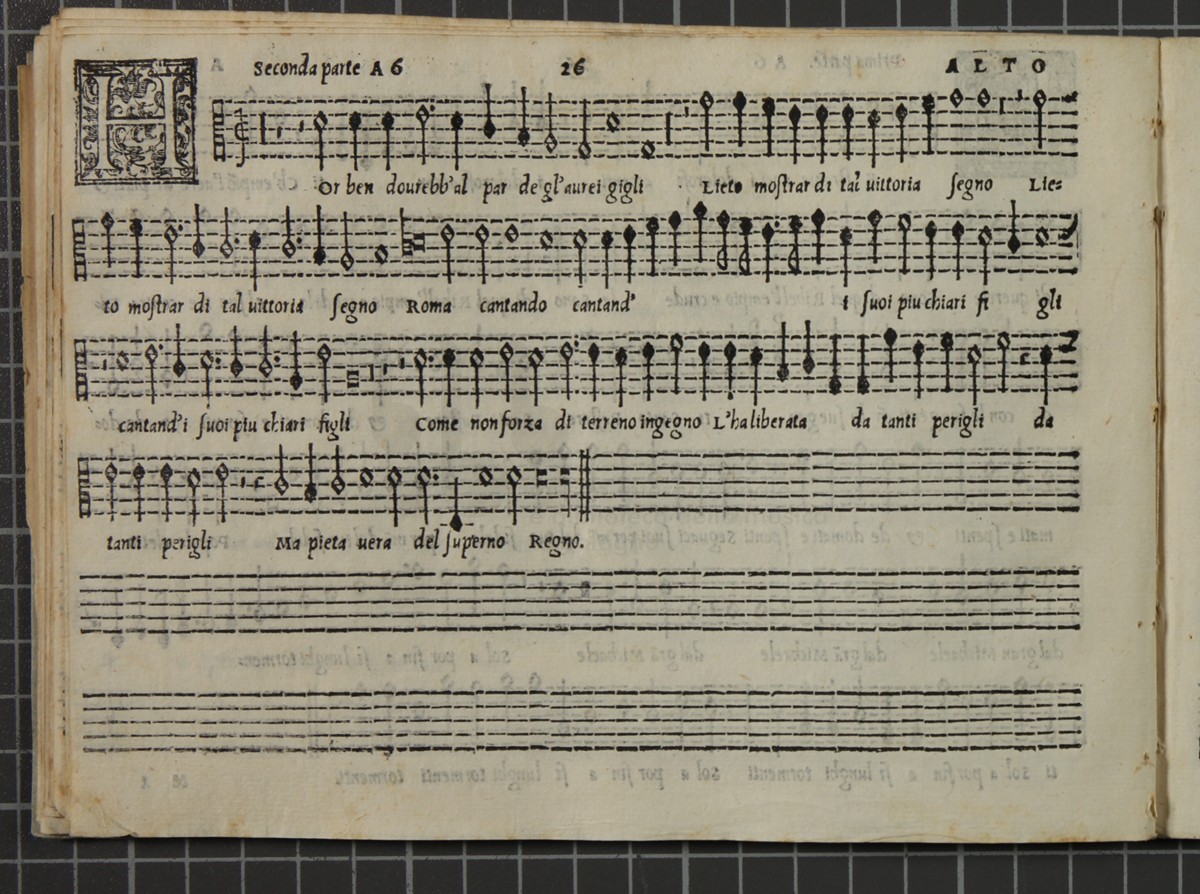 Seconda parte A 6 26 ALTO
H Or ben dourebb'al par de gl'aurei gigli Lieto mostrar di tal uittoria segno Lie=
to mostrar di tal uittoria segno Roma cantando cantand' i suoi piu chiari fi gli
cantand'i suoi piu chiari figli Come non forza di terreno ingegno L'ha liberata da tanti perigli da
tanti perigli Ma pieta uera del superno Regno.